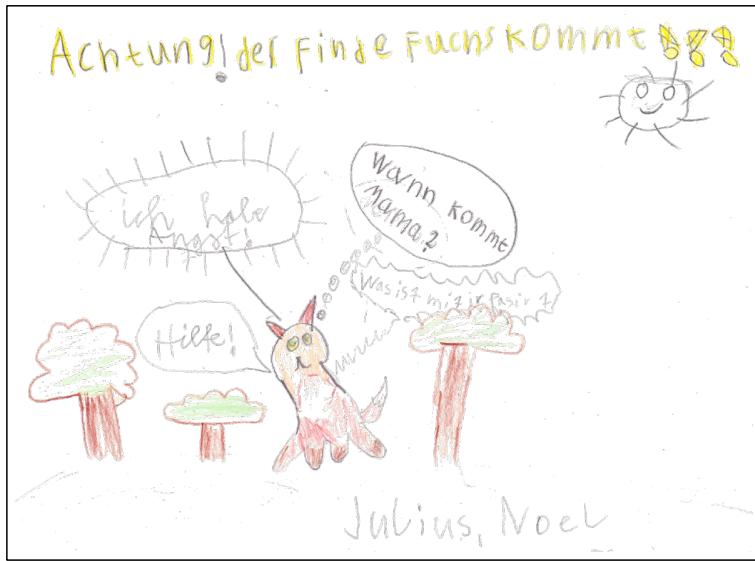 Achtung! der Finde Fuchs kommt!!!
ich habe
Angst!
Wann kommt
Mama?
Was ist mit ir pasirt
Hilfe!
Julius, Noel